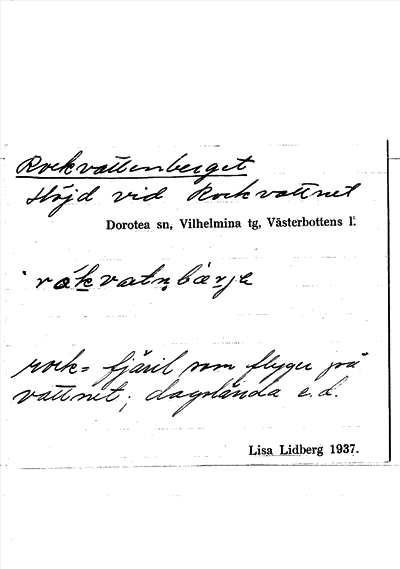 Rockvattenberget
Höjd vid Rockvattnet
Dorotea sn, Vilhelmina tg, Västerbottens l.
rock = fjäril som flyger på
vattnet; dagslända e.d.
Lisa Lidberg 1937.